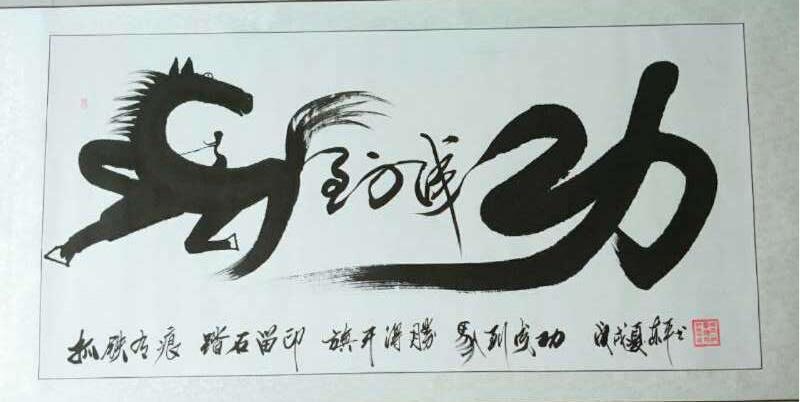 马到成功
抓铁有痕 踏石留印 旗开得勝 馬到成功 戊戌夏